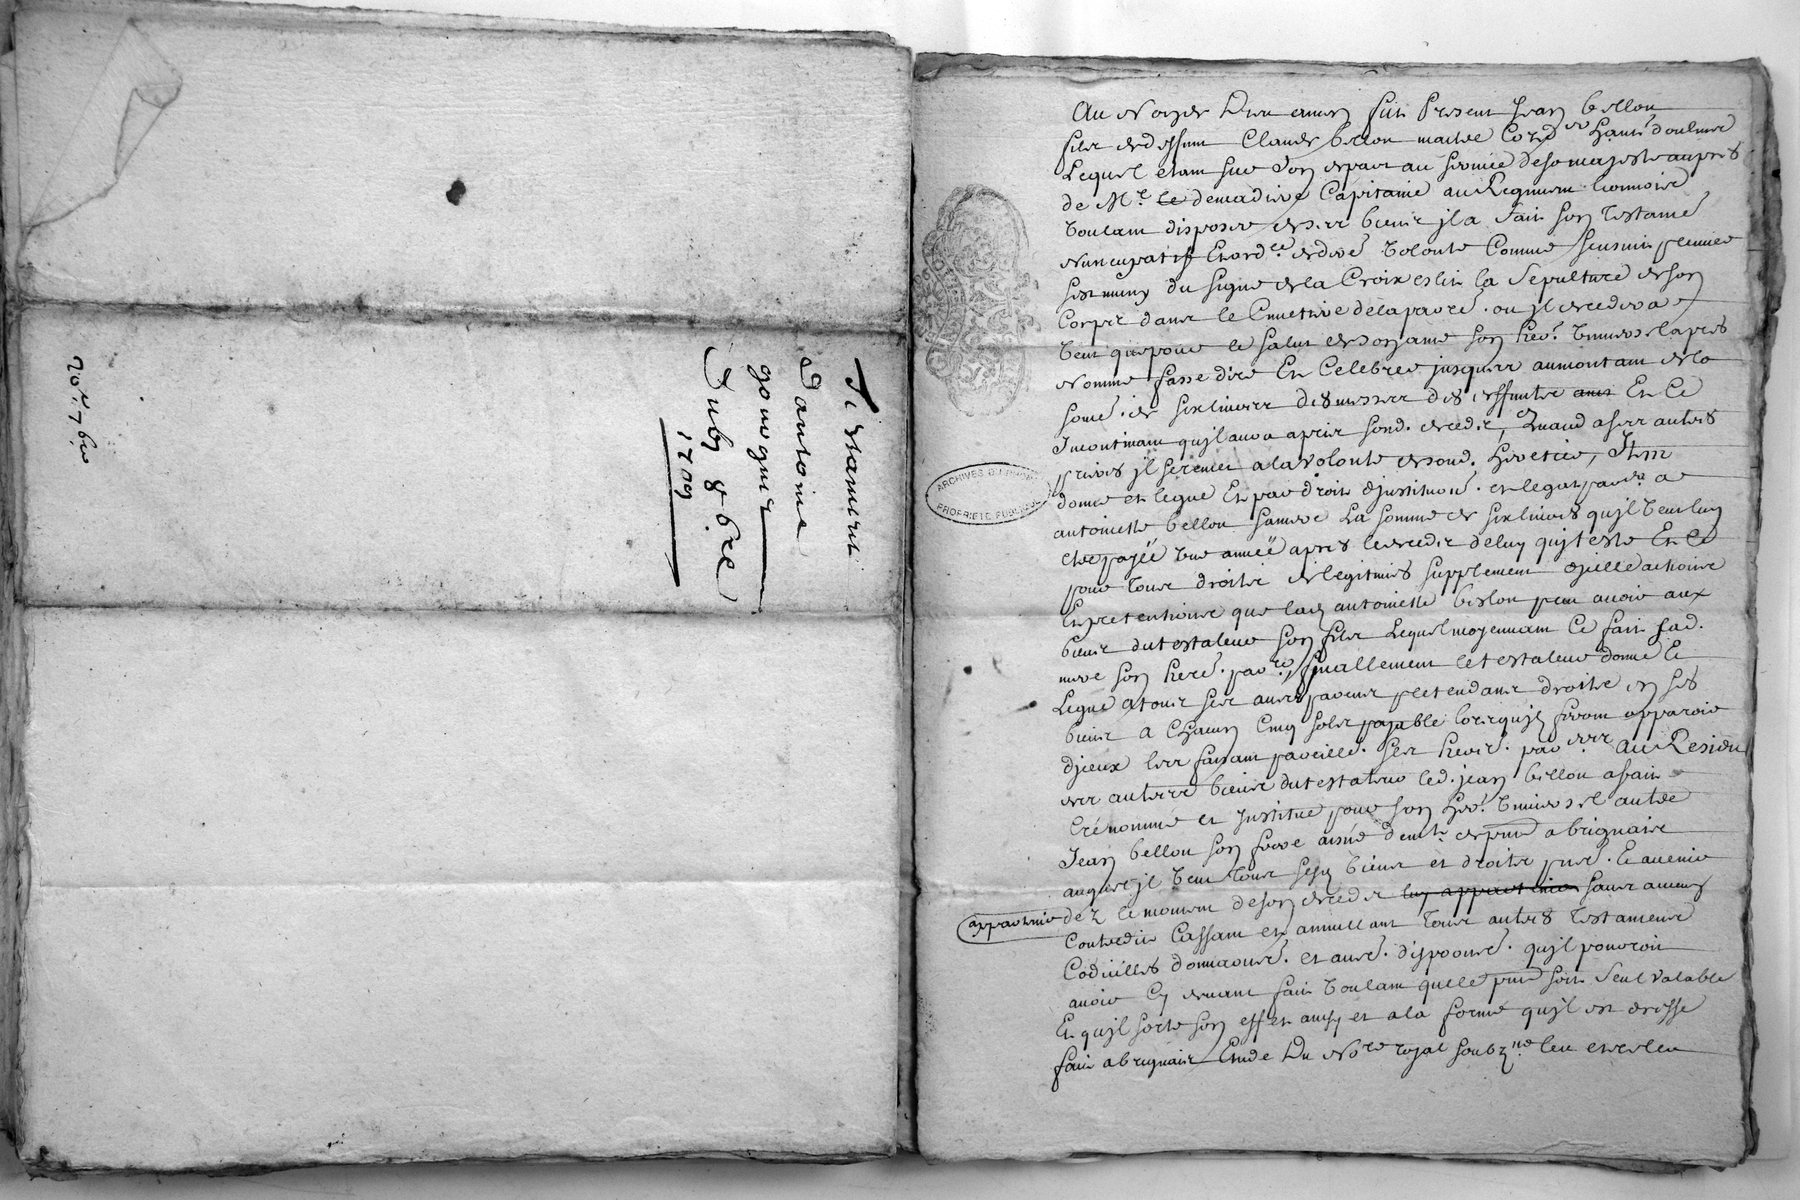 Testament
Dantoine
gonoguier
Du 8 bre
1709
Au Nom de Dieu amen fut Present Jean bellon
filz de deffunt Claude bellon maitre Cord.er hant. doulmer
Lequel etant sur son depart au service de sa majeste aupres
de M.r le demadiere Capitaine au Regiment lionnois
Voulant disposer de ses biens il a fait son Testame.
Nuncupatif Et ord.re de der.e Volonte Comme sensuit premier
sest muny du signe de la Croix eslit la Sepulture de son
Corps dans le Cimetiere de la parro.e ou il decedera
Veut que pour le salut de son ame son her. Universel apres
Nomme fasse dire Et Celebrer jusques au montant de la
some. de six livres des messes des deffuntz Et Ce
Incontinant quil aura apris sond. deces, Quand a ses autres
prieres il se remet a la volonte de sond. heretier, Item
donne et legue Et par droit dinstitution. et legat par.er a
antoinette bellon sa mere La somme de six livres quil Veut luy
etre payée une année apres le deces de luy quj teste Et Ce
pour Tous droitz de legitimes supplement dicelle actions
Et pretentions que lad antoinette bellon peut avoir aux
biens du testateur son filz Lequel moyennant Ce fait sad.
mere son here. par.re, finallement le testateur donne Et
Legue a tous ses autres parens pretendans droitz en ses
biens a Chacun Cinq solz payable lorsquils seront apparoir
dieux les faisant pareille. ses herers. par.eres au Residu
des autres biens du testateur led. jean bellon a fait
Cré nomme et Institue pour son her. Universel autre
Jean bellon son frere aisné demt. de prnt a brignais
auquel il Veut Tous sesd biens et droitz pres. Et avenir
appartenir
déz le moment de son deces luy appartenir sans aucung
Contredit Cassant et annullant Tous autres Testamens
Codicilles donnaons. et autre. dispoons. quil pouroit
avoir Cy devant fait Voulant que le prnt soit seul Valable
Et quil sorte son effet ainsy et a la forme quil est dresse
fait a brignais Etude Du No.re royal soubz.ne leu et releu
ARCHIVES DU RHONE
PROPRIETE PUBLIQUE